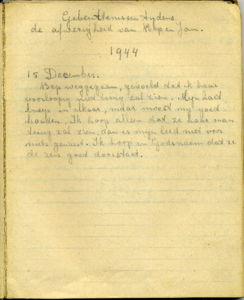 Gebeurtenissen tijdens
de afwezigheid van Bep en Jan.
1944
15 December.
Bep weggegaan, gevoeld dat ik haar
voorloopig niet terug zal zien. Mijn hart
in elkaar, maar moest mij goed
houden. Ik hoop alleen dat ze haar man
terug zal zien, dan is mijn leed niet voor
niets geweest. Ik hoop in Godsnaam dat ze
de reis goed doorstaat.